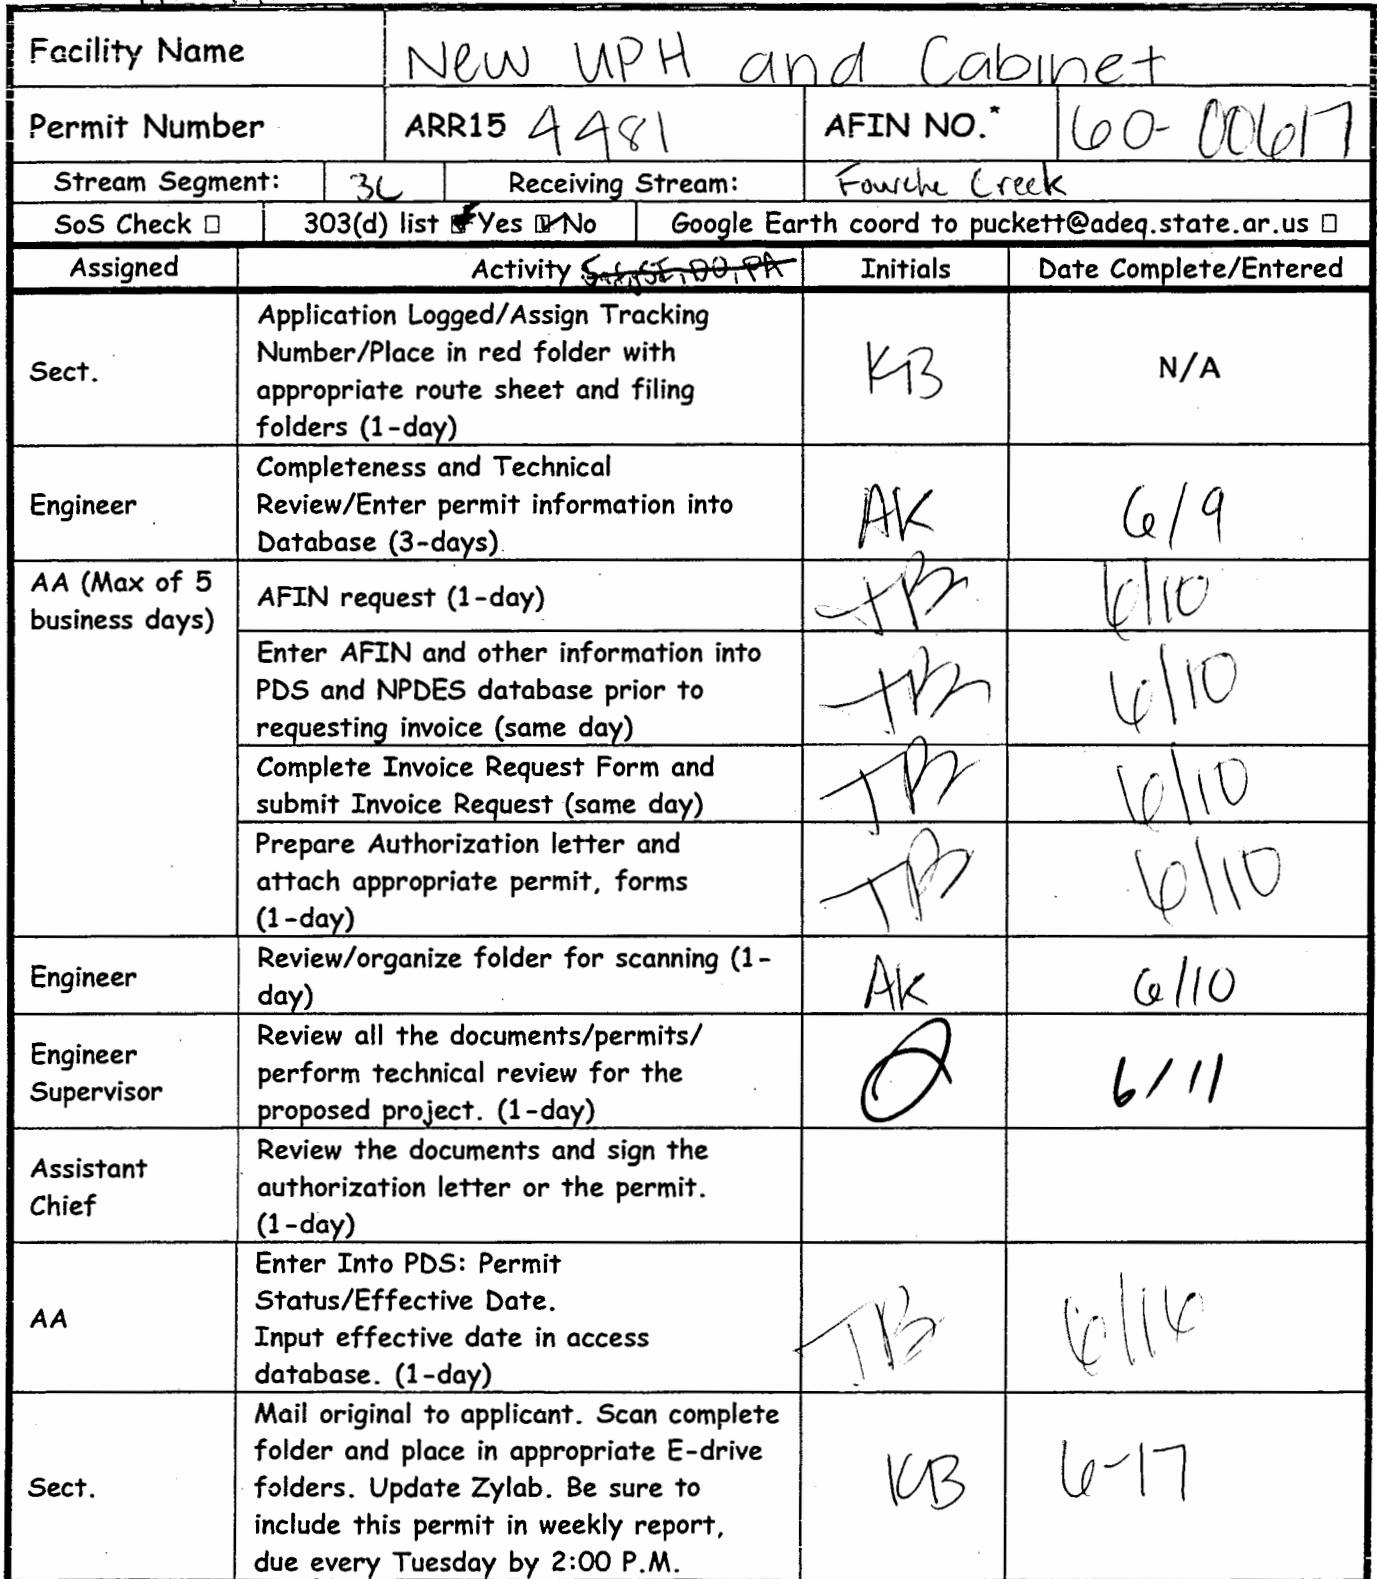 Facility Name New UPH and Cabinet
Permit Number ARR15 4481 AFIN NO.* 60-00617
Stream Segment: 3C Receiving Stream: Fourche Creek
SoS Check ☐ 303(d) list ☑ Yes ☑ No Google Earth coord to puckett@adeq.state.ar.us ☐
Assigned Activity Initials Date Complete/Entered
Application Logged/Assign Tracking
Number/Place in red folder with
Sect. appropriate route sheet and filing KB N/A
folders (1-day)
Completeness and Technical
Engineer Review/Enter permit information into AK 6/9
Database (3-days)
AA (Max of 5
business days) AFIN request (1-day) TB 6/10
Enter AFIN and other information into
PDS and NPDES database prior to TB 6/10
requesting invoice (same day)
Complete Invoice Request Form and
submit Invoice Request (same day) TB 6/10
Prepare Authorization letter and
attach appropriate permit, forms TB 6/10
(1-day)
Engineer Review/organize folder for scanning (1- AK 6/10
day)
Engineer Review all the documents/permits/
Supervisor perform technical review for the 6/11
proposed project. (1-day)
Assistant Review the documents and sign the
Chief authorization letter or the permit.
(1-day)
Enter Into PDS: Permit
AA Status/Effective Date. TB 6/16
Input effective date in access
database. (1-day)
Mail original to applicant. Scan complete
folder and place in appropriate E-drive
Sect. folders. Update Zylab. Be sure to KB 6-17
include this permit in weekly report,
due every Tuesday by 2:00 P.M.